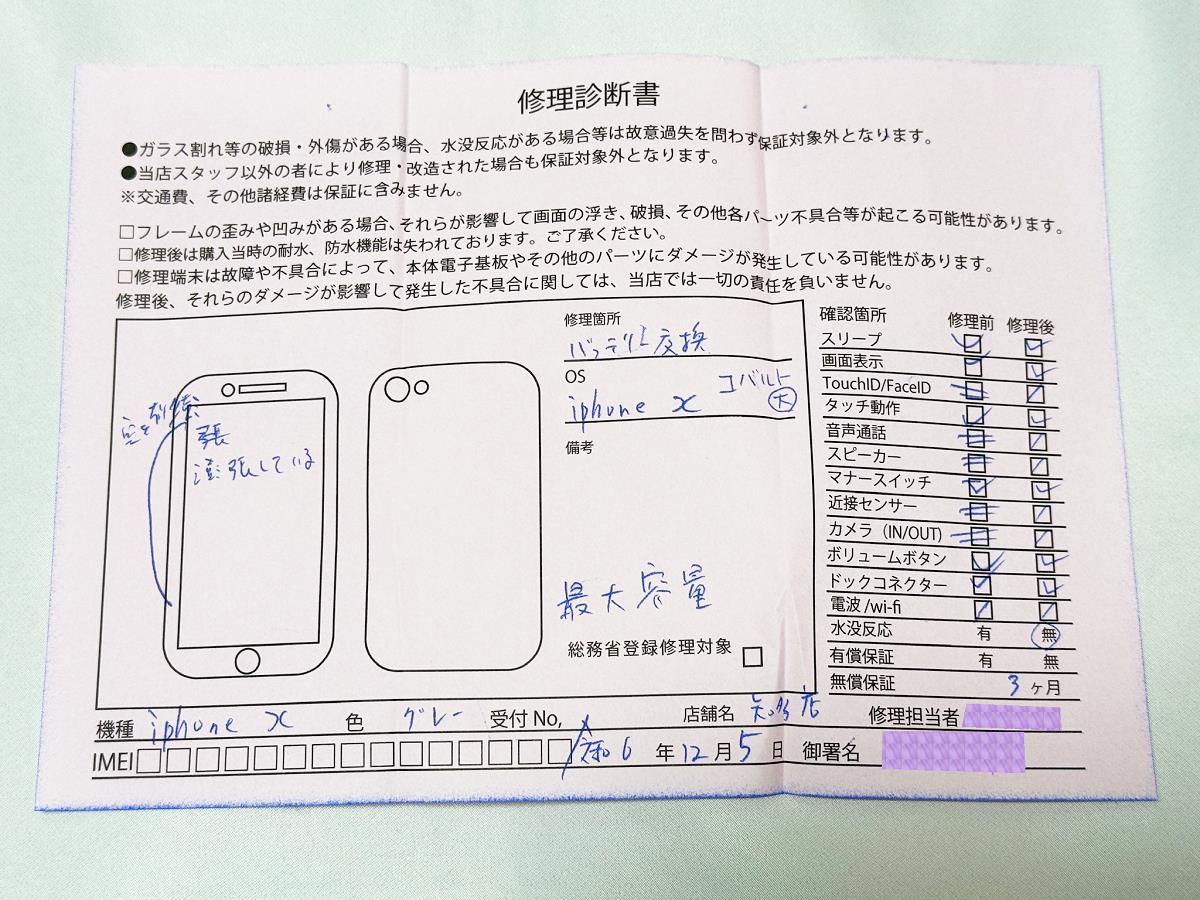 修理診断書
●ガラス割れ等の破損・外傷がある場合、水没反応がある場合等は故意過失を問わず保証対象外となります。
●当店スタッフ以外の者により修理・改造された場合も保証対象外となります。
※交通費、その他諸経費は保証に含みません。
□フレームの歪みや凹みがある場合、それらが影響して画面の浮き、破損、その他各パーツ不具合等が起こる可能性があります。
□修理後は購入当時の耐水、防水機能は失われております。ご了承ください。
□修理端末は故障や不具合によって、本体電子基板やその他のパーツにダメージが発生している可能性があります。
修理後、それらのダメージが影響して発生した不具合に関しては、当店では一切の責任を負いません。
張
澎張している
修理箇所
バッテリー交換
OS
iphone x
コバルト
大
備考
最大容量
総務省登録修理対象 □
確認箇所 修理前 修理後
スリープ
画面表示
TouchID/FaceID
タッチ動作
音声通話
スピーカー
マナースイッチ
近接センサー
カメラ（IN/OUT）
ボリュームボタン
ドックコネクター
電波/wi-fi
水没反応 有 無
有償保証 有 無
無償保証 3ヶ月
機種 iphone x 色 グレー 受付No, 店舗名 知多店 修理担当者
IMEI 6年12月5日 御署名